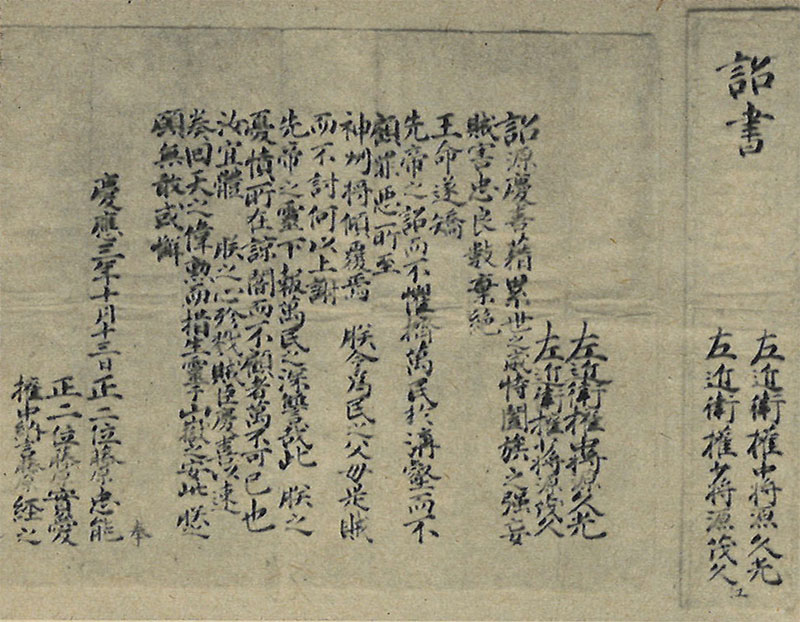 詔書
左近衛権中将源久光
左近衛権少将源茂久
江
左近衛権中将源久光
左近衛権少将源茂久
詔源慶喜藉累世之威恃闔族之强妄
賊害忠良數棄絶
王命遂矯
先帝之詔而不懼擠萬民於溝壑而不
顧罪悪所至
神州将傾覆焉 朕今為民之父母是賊
而不討何以上謝
先帝之靈下報萬民之深讐哉此 朕之
憂憤所在諒闇而不顧者萬不可已也
汝宜體 朕之心殄戮賊臣慶喜以速
奏回天之偉勲而措生靈于山嶽之安此朕
願無敢或懈
慶應三年十月十三日正二位藤原忠能
正二位藤原實愛
権中納言藤原経之
奉